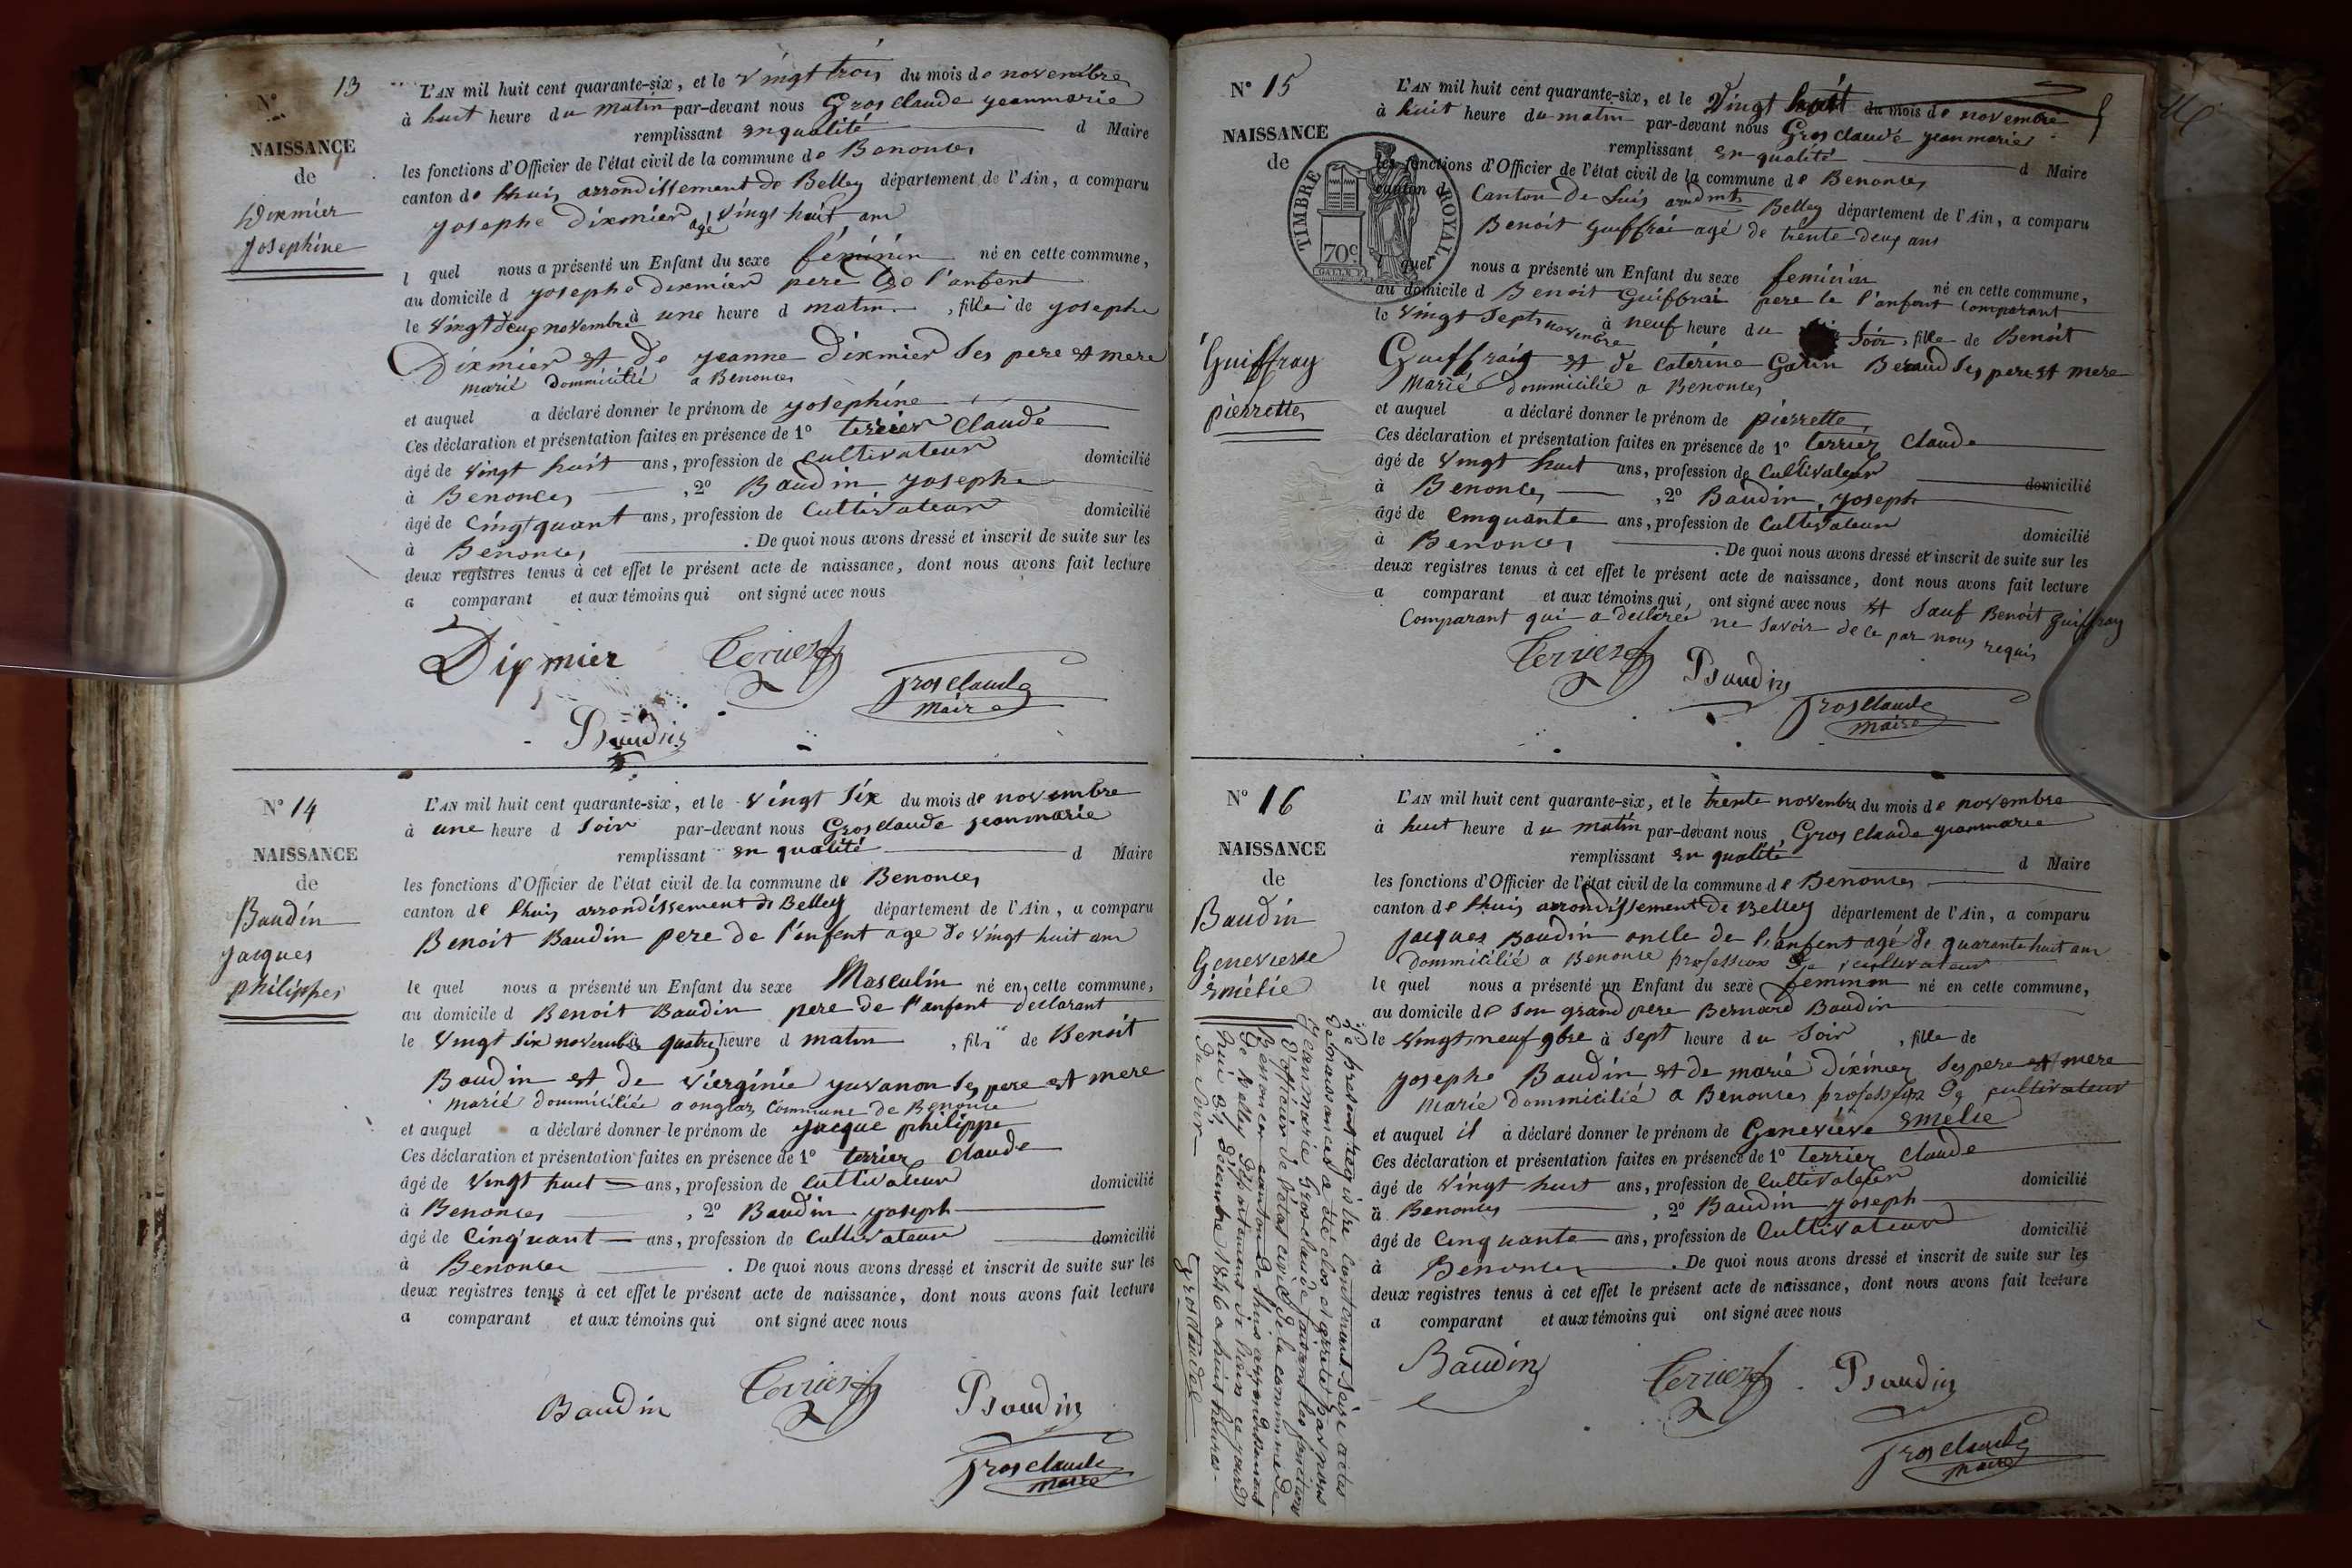 N° 13
NAISSANCE
de
Dixmier
Josephine
L'AN mil huit cent quarante-six, et le vingt trois du mois de novembre
à huit heure du matin par-devant nous Gros claude jeanmarie
remplissant en qualité d Maire
les fonctions d'Officier de l'état civil de la commune de Benonces
canton de Lhuis arrondissement de Belley département de l'Ain, a comparu
Josephe Dixmier agé vingt huit ans
l quel nous a présenté un Enfant du sexe féminin né en cette commune,
au domicile d josephe dixmier pere de l'anfent
le vingt deux novembre à une heure d matin, fille de josephe
Dixmier et de jeanne Dixmier ses pere et mere
marié dommicilié a Benonces
et auquel a déclaré donner le prénom de josephine
Ces déclaration et présentation faites en présence de 1° terrier Claude
âgé de vingt huit ans, profession de cultivateur domicilié
à Benonces, 2° Baudin josephe
âgé de cingtquant ans, profession de cultivateur domicilié
à Benonces. De quoi nous avons dressé et inscrit de suite sur les
deux registres tenus à cet effet le présent acte de naissance, dont nous avons fait lecture
a comparant et aux témoins qui ont signé avec nous
Dixmier Terrier
Grosclaude
maire
Baudin
N° 14
NAISSANCE
de
Baudin
jacques
philippes
L'AN mil huit cent quarante-six, et le vingt six du mois de novembre
à une heure d soir par-devant nous Grosclaude jeanmarie
remplissant en qualité d Maire
les fonctions d'Officier de l'état civil de la commune de Benonces
canton de Lhuis arrondissement de Belley département de l'Ain, a comparu
Benoit Baudin pere de l'enfent age de vingt huit ans
le quel nous a présenté un Enfant du sexe Masculin né en cette commune,
au domicile d Benoit Baudin pere de l'anfent declarant
le vingt six novembre quatre heure d matin, fils de Benoit
Baudin et de vierginie juvanon ses pere et mere
marié dommiciliée a onglas Commune de Benonce
et auquel a déclaré donner le prénom de jacque philippe
Ces déclaration et présentation faites en présence de 1° terrier Claude
âgé de vingt huit ans, profession de Cultivateur domicilié
à Benonces, 2° Baudin joseph
âgé de Cinquant ans, profession de Cultivateur domicilié
à Benonces. De quoi nous avons dressé et inscrit de suite sur les
deux registres tenus à cet effet le présent acte de naissance, dont nous avons fait lecture
a comparant et aux témoins qui ont signé avec nous
Baudin Terrier Baudin
Grosclaude
maire
N° 15
NAISSANCE
de
TIMBRE ROYAL
70c.
Guiffray
pierrette
L'AN mil huit cent quarante-six, et le vingt huit du mois de novembre
à huit heure du matin par-devant nous Gros claude jeanmarie
remplissant en qualité d Maire
les fonctions d'Officier de l'état civil de la commune de Benonces
canton d Canton de Luis Belley département de l'Ain, a comparu
Benoit Guiffrai agé de trente deux ans
l quel nous a présenté un Enfant du sexe feminin né en cette commune,
au domicile d Benoit Guiffrai pere de l'anfent Comparant
le vingt sept novembre à neuf heure du soir, fille de Benoit
Guiffraig et de Caterine Garin Beraud ses pere et mere
Marié dommicilié a Benonces
et auquel a déclaré donner le prénom de pierrette
Ces déclaration et présentation faites en présence de 1° terrier Claude
âgé de vingt huit ans, profession de Cultivateur domicilié
à Benonces, 2° Baudin joseph
âgé de Cinquante ans, profession de Cultivateur domicilié
à Benonces. De quoi nous avons dressé et inscrit de suite sur les
deux registres tenus à cet effet le présent acte de naissance, dont nous avons fait lecture
a comparant et aux témoins qui ont signé avec nous et sauf Benoit Guiffray
Comparant qui a declaree ne savoir de ce par nous requis
Terrier Baudin
Grosclaude
maire
N° 16
NAISSANCE
de
Baudin
Genevieve
Emélie
L'AN mil huit cent quarante-six, et le trente novembre du mois de novembre
à huit heure du matin par-devant nous Gros claude jeanmarie
remplissant en qualité d Maire
les fonctions d'Officier de l'état civil de la commune de Benonces
canton de Lhuis arrondissement de Belley département de l'Ain, a comparu
jacques Baudin oncle de l'anfent agé de quarante huit ans
dommicilié a Benonce profession de cultivateur
le quel nous a présenté un Enfant du sexe feminin né en cette commune,
au domicile de son grand pere Bernard Baudin
le vingt neuf 9bre à sept heure du soir, fille de
josephe Baudin et de marie dixmier ses pere et mere
marié dommicilié a Benonces profession de cultivateur
et auquel il a déclaré donner le prénom de Geneviéve Emelie
Ces déclaration et présentation faites en présence de 1° terrier Claude
âgé de vingt huit ans, profession de Cultivateur domicilié
à Benonces, 2° Baudin joseph
âgé de Cinquante ans, profession de Cultivateur domicilié
à Benonces. De quoi nous avons dressé et inscrit de suite sur les
deux registres tenus à cet effet le présent acte de naissance, dont nous avons fait lecture
a comparant et aux témoins qui ont signé avec nous
Baudin Terrier Baudin
Grosclaude
maire
Le present registre contenant seise actes
de naissances a été clos et arreté par nous
Jean marie Gros claude faisant les fonctions
d'officier de l'état civil de la commune de
Benonces canton de Lhuis arrondissement
de Belley département de l'ain ce jourd
hui 31 décembre 1846 a huit heures
du soir
Grosclaude